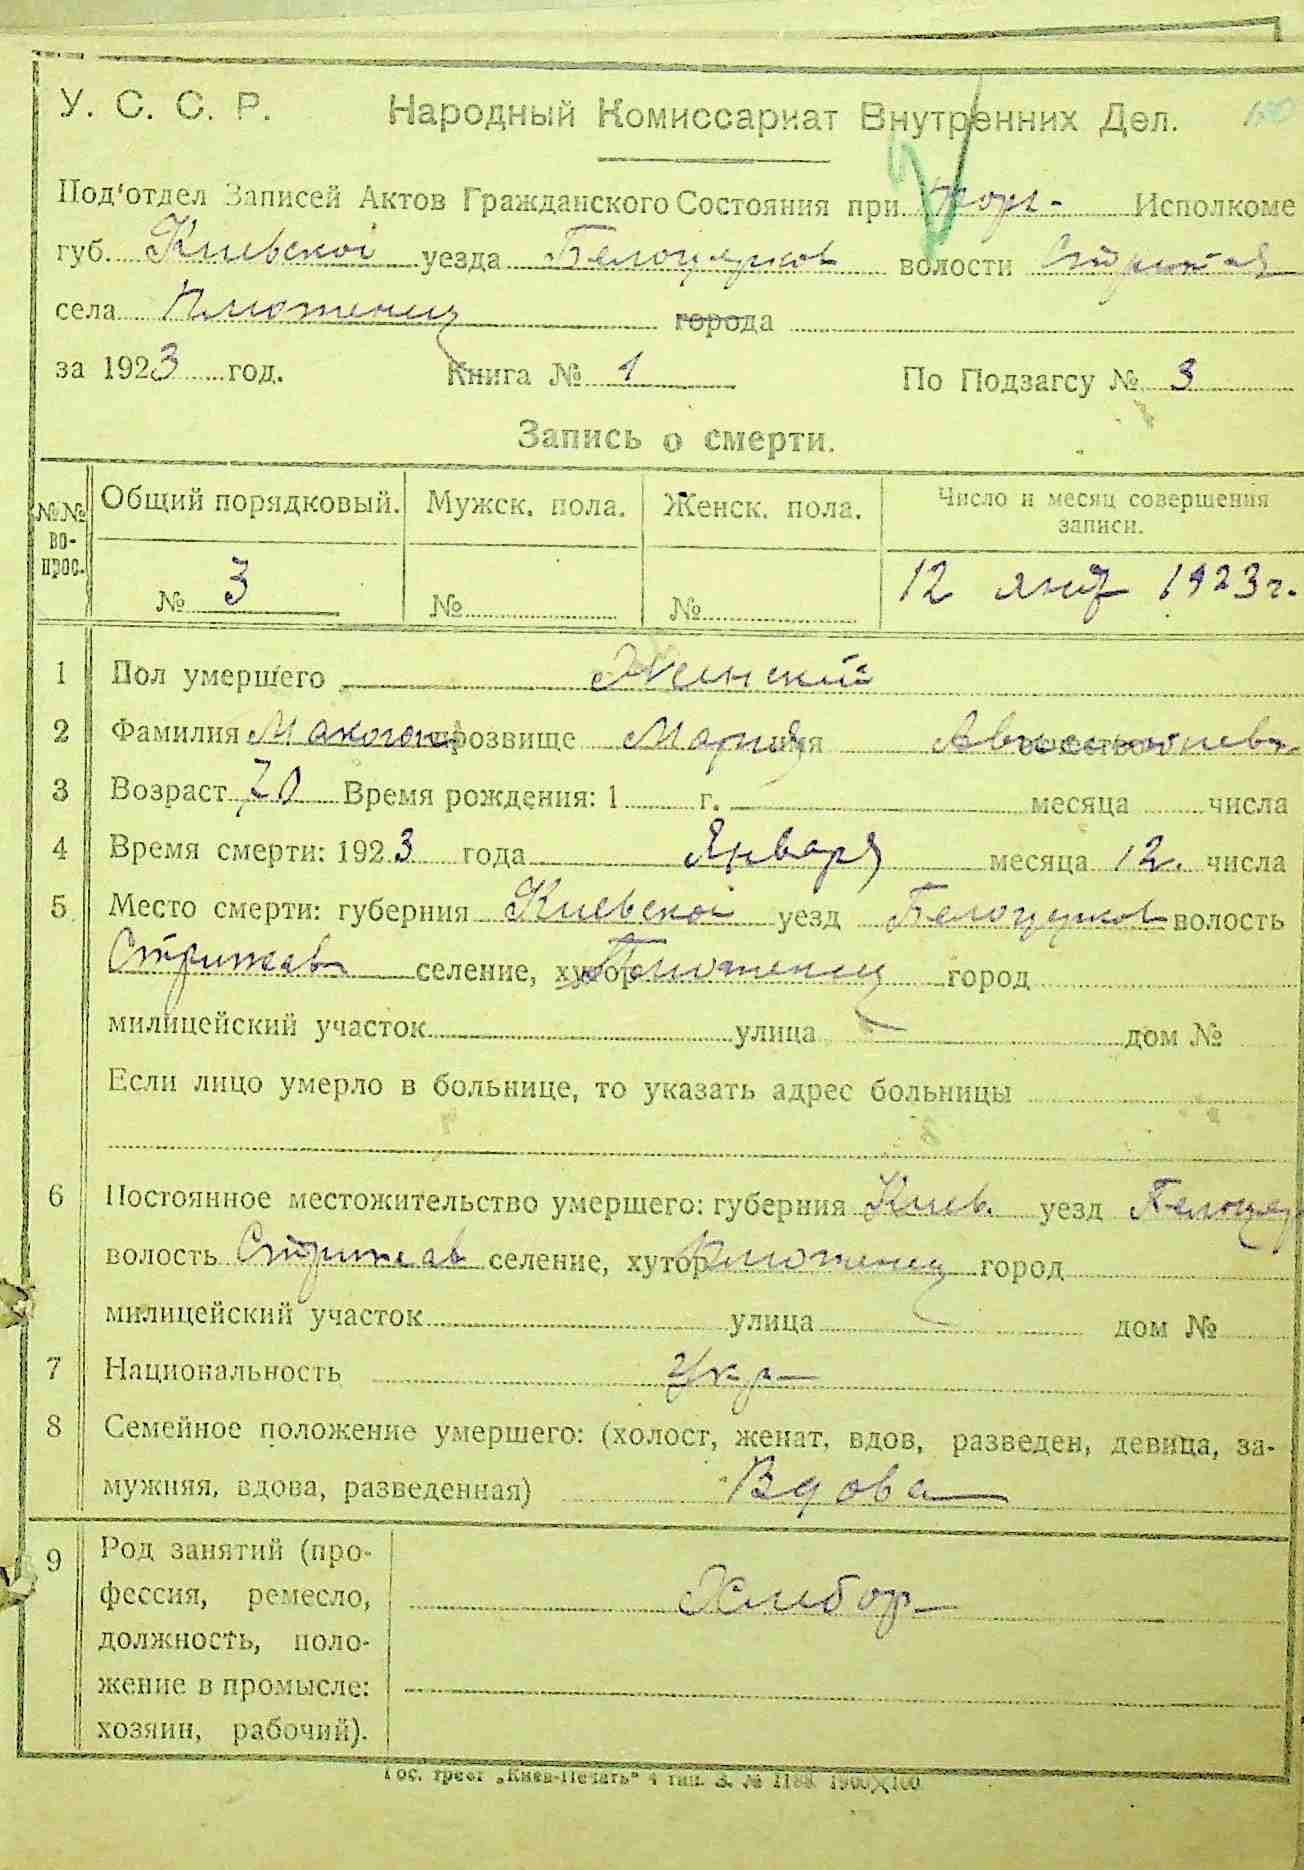 У. С. С. Р. Народный Комиссариат Внутренних Дел.
Под'отдел Записей Актов Гражданского Состояния при Исполкоме
губ. Киевскоі уезда Белоцерков волости
села города
за 1923 год. Книга № 1 По Подзагсу № 3
Запись о смерти.
№№ во-прос. Общий порядковый. Мужск. пола. Женск. пола. Число и месяц совершения записи.
№ 3 № № 12 янв 1923 г.
1 Пол умершего Женский
2 Фамилия Макогон прозвище Мария имя отчество
3 Возраст 70 Время рождения: 1 г. месяца числа
4 Время смерти: 1923 года Января месяца 12. числа
5 Место смерти: губерния Киевскоі уезд Белоцерков волость
Стрижав селение, хутор город
милицейский участок улица дом №
Если лицо умерло в больнице, то указать адрес больницы
6 Постоянное местожительство умершего: губерния Киев. уезд Белоцер
волость Стрижав селение, хутор город
милицейский участок улица дом №
7 Национальность Укр
8 Семейное положение умершего: (холост, женат, вдов, разведен, девица, за-
мужняя, вдова, разведенная) Вдова
9 Род занятий (про-
фессия, ремесло, Хлибор
должность, поло-
жение в промысле:
хозяин, рабочий).
Гос. трест „Киев-Печать“ 4 тип. З. № 1188 1900×100